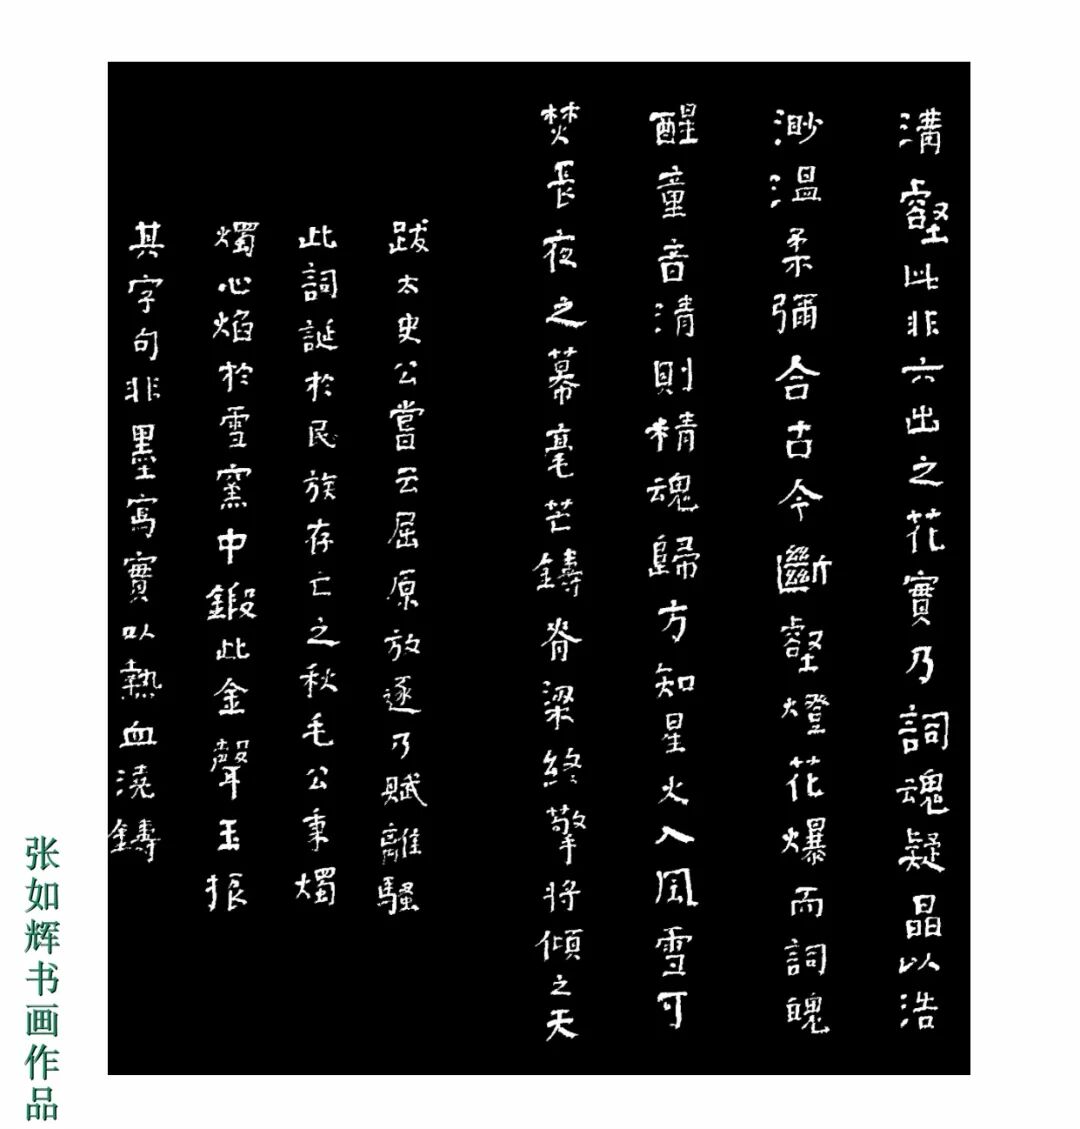 溝壑此非六出之花實乃詞魂疑晶以浩
渺溫柔彌合古今斷壑燈花爆而詞魄
醒童音清則精魂歸方知星火入風雪可
焚長夜之幕毫芒鑄脊梁終擎將傾之天
跋太史公嘗云屈原放逐乃賦離騷
此詞誕於民族存亡之秋毛公秉燭
燭心焰於雪窯中鍛此金聲玉振
其字句非墨寫實以熱血澆鑄
张如辉书画作品